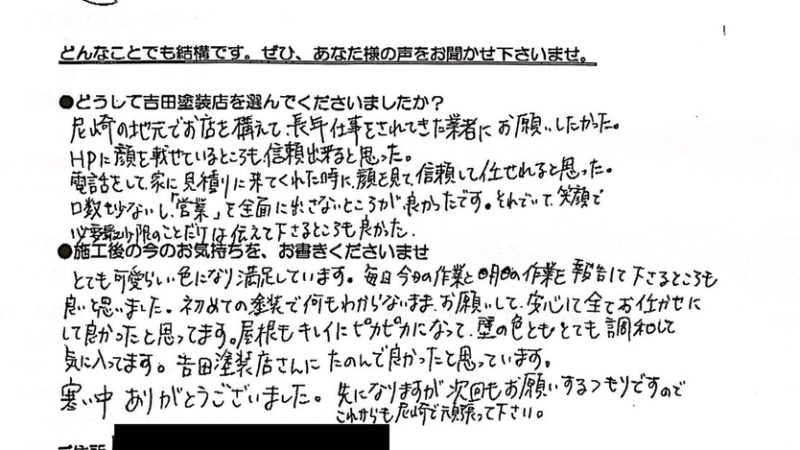 どんなことでも結構です。ぜひ、あなた様の声をお聞かせ下さいませ。
●どうして吉田塗装店を選んでくださいましたか？
尼崎の地元でお店を構えて、長年仕事をされてきた業者にお願いしたかった。
HPに顔を載せているところも信頼出来ると思った。
電話をして家に見積りに来てくれた時に、顔を見て信頼して任せれると思った。
口数も少ないし、「営業」を全面に出さないところが良かったです。それでいて、笑顔で
必要最少限のことだけは伝えて下さるところも良かった.
●施工後の今のお気持ちを、お書きくださいませ
とても可愛らしい色になり満足しています。毎日今日の作業と明日の作業を報告して下さるところも
良いと思いました。初めての塗装で何もわからないまま、お願いして、安心して全てお任せに
して良かったと思ってます。屋根もキレイにピカピカになって、壁の色ともとても調和して
気に入ってます。吉田塗装店さんにたのんで良かったと思っています。
寒い中 ありがとうございました。 先になりますが次回もお願いするつもりですので
これからも尼崎で頑張って下さい。